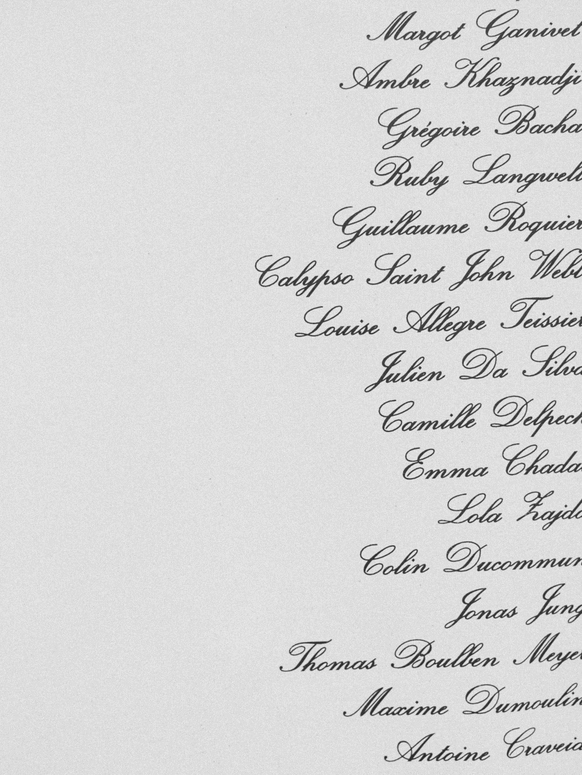 Margot Ganivet
Ambre Khaznadji
Grégoire Bacha
Ruby Langwell
Guillaume Roquier
Calypso Saint John
Louise Allegre Teissier
Julien Da Silva
Camille Delpech
Emma Chada
Lola Zajda
Colin Ducommun
Jonas Jung
Thomas Boulben Meyer
Maxime Dumoulin
Antoine